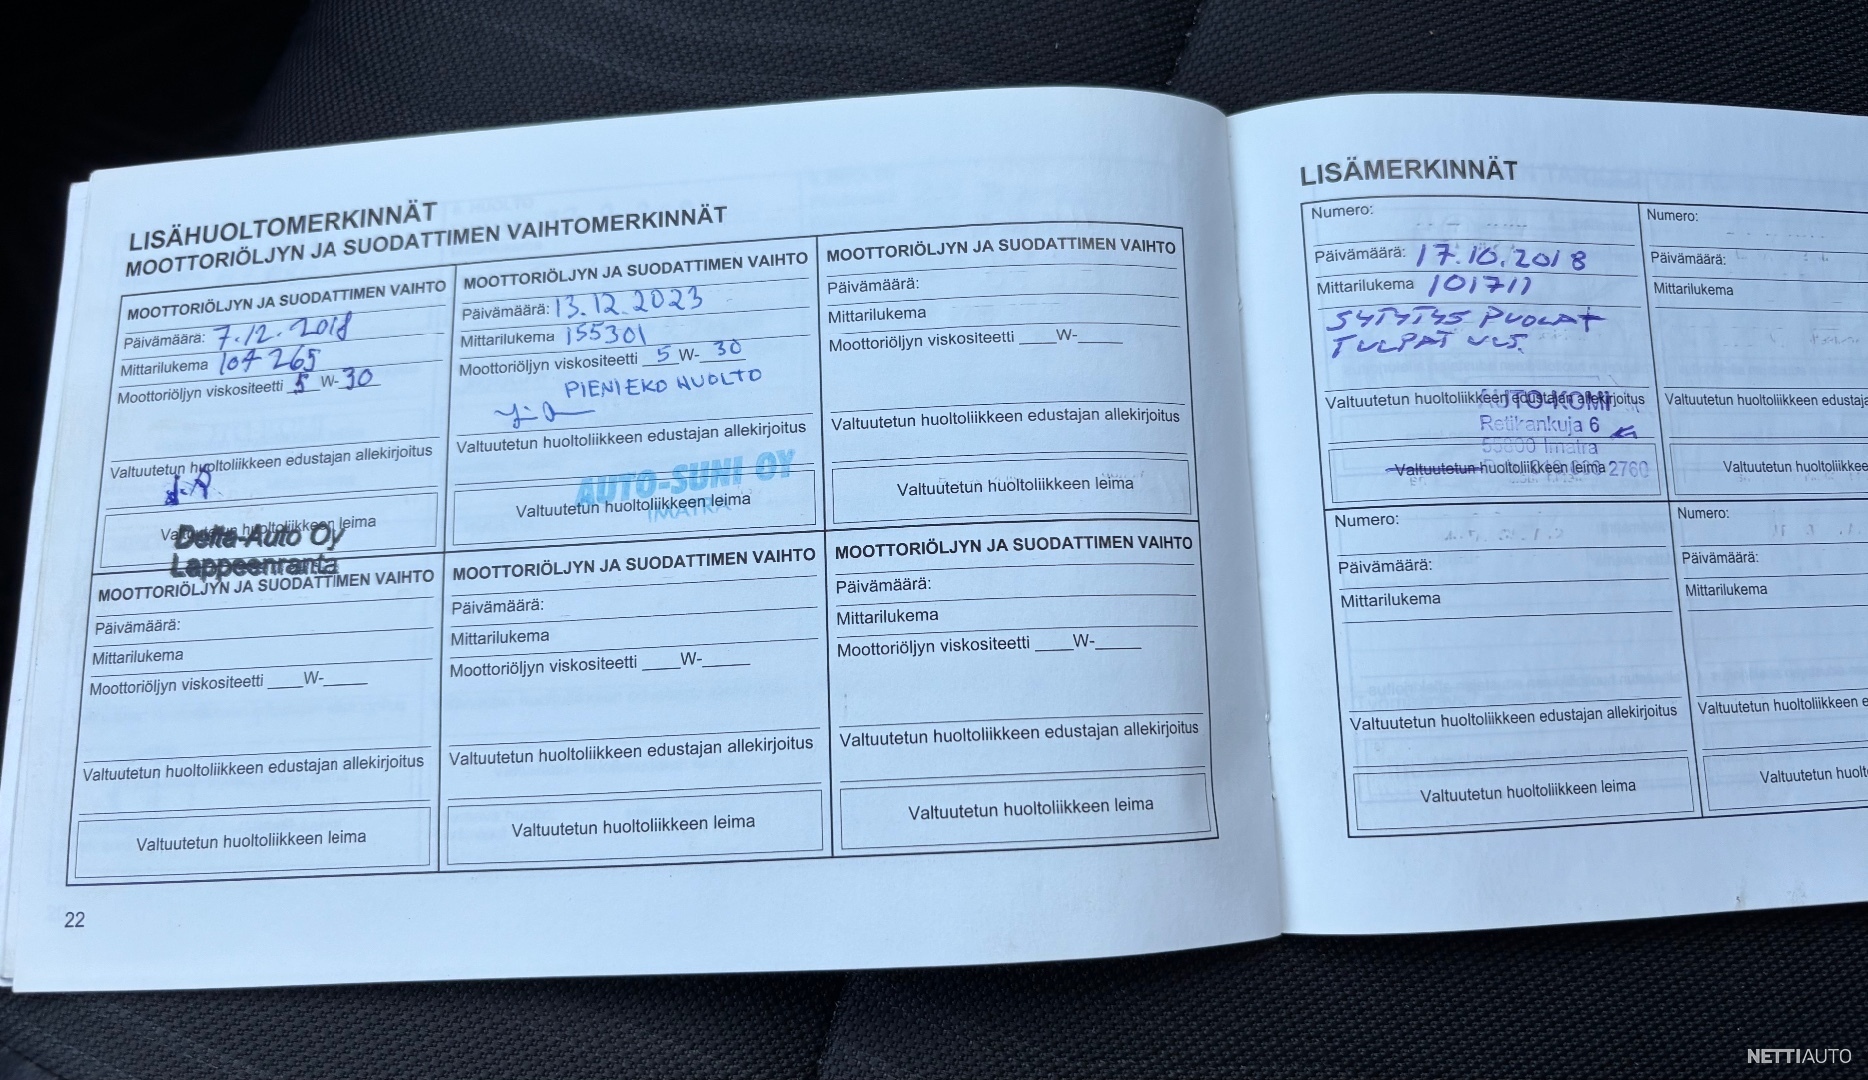 LISÄHUOLTOMERKINNÄT
MOOTTORIÖLJYN JA SUODATTIMEN VAIHTOMERKINNÄT
MOOTTORIÖLJYN JA SUODATTIMEN VAIHTO
Päivämäärä: 7.12.2018
Mittarilukema 104 265
Moottoriöljyn viskositeetti 5 W-30
Valtuutetun huoltoliikkeen edustajan allekirjoitus
Valtuutetun huoltoliikkeen leima
Delta-Auto Oy
Lappeenranta
MOOTTORIÖLJYN JA SUODATTIMEN VAIHTO
Päivämäärä: 13.12.2023
Mittarilukema 155301
Moottoriöljyn viskositeetti 5 W-30
PIENI EKO HUOLTO
Valtuutetun huoltoliikkeen edustajan allekirjoitus
AUTO-SUNI OY
Valtuutetun huoltoliikkeen leima
IMATRA
MOOTTORIÖLJYN JA SUODATTIMEN VAIHTO
Päivämäärä:
Mittarilukema
Moottoriöljyn viskositeetti ____W-_____
Valtuutetun huoltoliikkeen edustajan allekirjoitus
Valtuutetun huoltoliikkeen leima
MOOTTORIÖLJYN JA SUODATTIMEN VAIHTO
Päivämäärä:
Mittarilukema
Moottoriöljyn viskositeetti ____W-_____
Valtuutetun huoltoliikkeen edustajan allekirjoitus
Valtuutetun huoltoliikkeen leima
MOOTTORIÖLJYN JA SUODATTIMEN VAIHTO
Päivämäärä:
Mittarilukema
Moottoriöljyn viskositeetti ____W-_____
Valtuutetun huoltoliikkeen edustajan allekirjoitus
Valtuutetun huoltoliikkeen leima
MOOTTORIÖLJYN JA SUODATTIMEN VAIHTO
Päivämäärä:
Mittarilukema
Moottoriöljyn viskositeetti ____W-_____
Valtuutetun huoltoliikkeen edustajan allekirjoitus
Valtuutetun huoltoliikkeen leima
22
LISÄMERKINNÄT
Numero:
Päivämäärä: 17.10.2018
Mittarilukema 101711
SYTYTYS PUOLAT
TULPAT UUS.
Valtuutetun huoltoliikkeen edustajan allekirjoitus
AUTO KOMI
Retikankuja 6
55800 Imatra
Valtuutetun huoltoliikkeen leima
2760
Numero:
Päivämäärä:
Mittarilukema
Valtuutetun huoltoliikkeen edustaja
Valtuutetun huoltoliikkee
Numero:
Päivämäärä:
Mittarilukema
Valtuutetun huoltoliikkeen edustajan allekirjoitus
Valtuutetun huoltoliikkeen leima
Numero:
Päivämäärä:
Mittarilukema
Valtuutetun huoltoliikkeen e
Valtuutetun huolt
NETTIAUTO